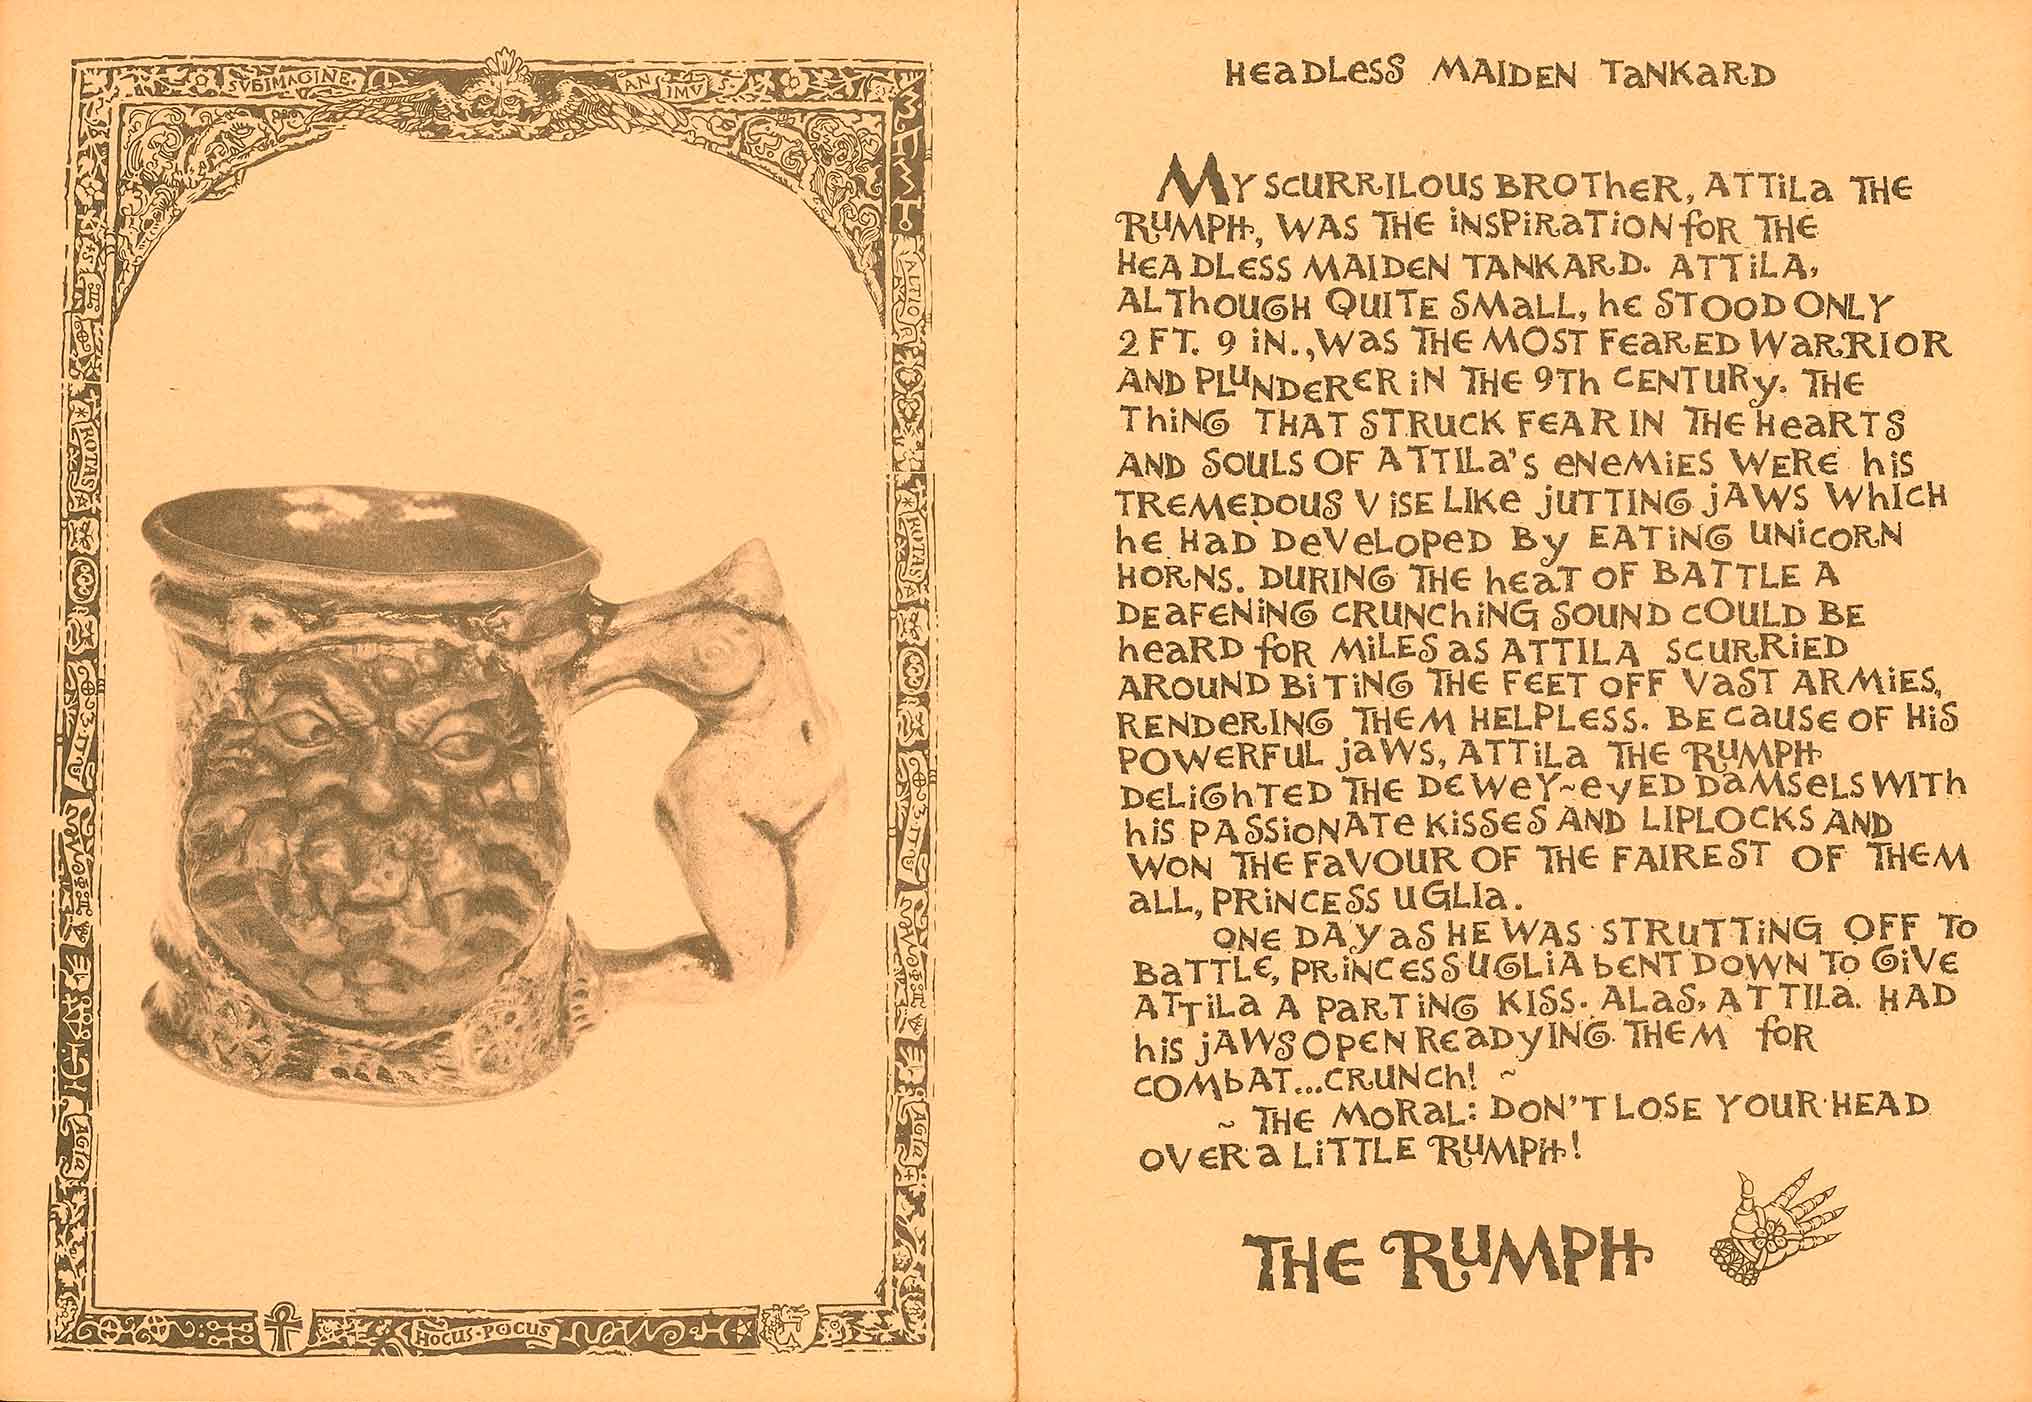 SVBIMAGINE
ANIMVS
ALTIO
ROTAS
ROTAS
AGLA
AGLA
HOCUS·POCUS
HEADLESS MAIDEN TANKARD
MY SCURRILOUS BROTHER, ATTILA THE
RUMPH, WAS THE INSPIRATION FOR THE
HEADLESS MAIDEN TANKARD. ATTILA,
ALTHOUGH QUITE SMALL, HE STOOD ONLY
2 FT. 9 IN., WAS THE MOST FEARED WARRIOR
AND PLUNDERER IN THE 9TH CENTURY. THE
THING THAT STRUCK FEAR IN THE HEARTS
AND SOULS OF ATTILA'S ENEMIES WERE HIS
TREMEDOUS VISE LIKE JUTTING JAWS WHICH
HE HAD DEVELOPED BY EATING UNICORN
HORNS. DURING THE HEAT OF BATTLE A
DEAFENING CRUNCHING SOUND COULD BE
HEARD FOR MILES AS ATTILA SCURRIED
AROUND BITING THE FEET OFF VAST ARMIES,
RENDERING THEM HELPLESS. BECAUSE OF HIS
POWERFUL JAWS, ATTILA THE RUMPH
DELIGHTED THE DEWEY~EYED DAMSELS WITH
HIS PASSIONATE KISSES AND LIPLOCKS AND
WON THE FAVOUR OF THE FAIREST OF THEM
ALL, PRINCESS UGLIA.
ONE DAY AS HE WAS STRUTTING OFF TO
BATTLE, PRINCESS UGLIA BENT DOWN TO GIVE
ATTILA A PARTING KISS. ALAS, ATTILA HAD
HIS JAWS OPEN READYING THEM FOR
COMBAT...CRUNCH! ~
~ THE MORAL: DON'T LOSE YOUR HEAD
OVER A LITTLE RUMPH!
THE RUMPH